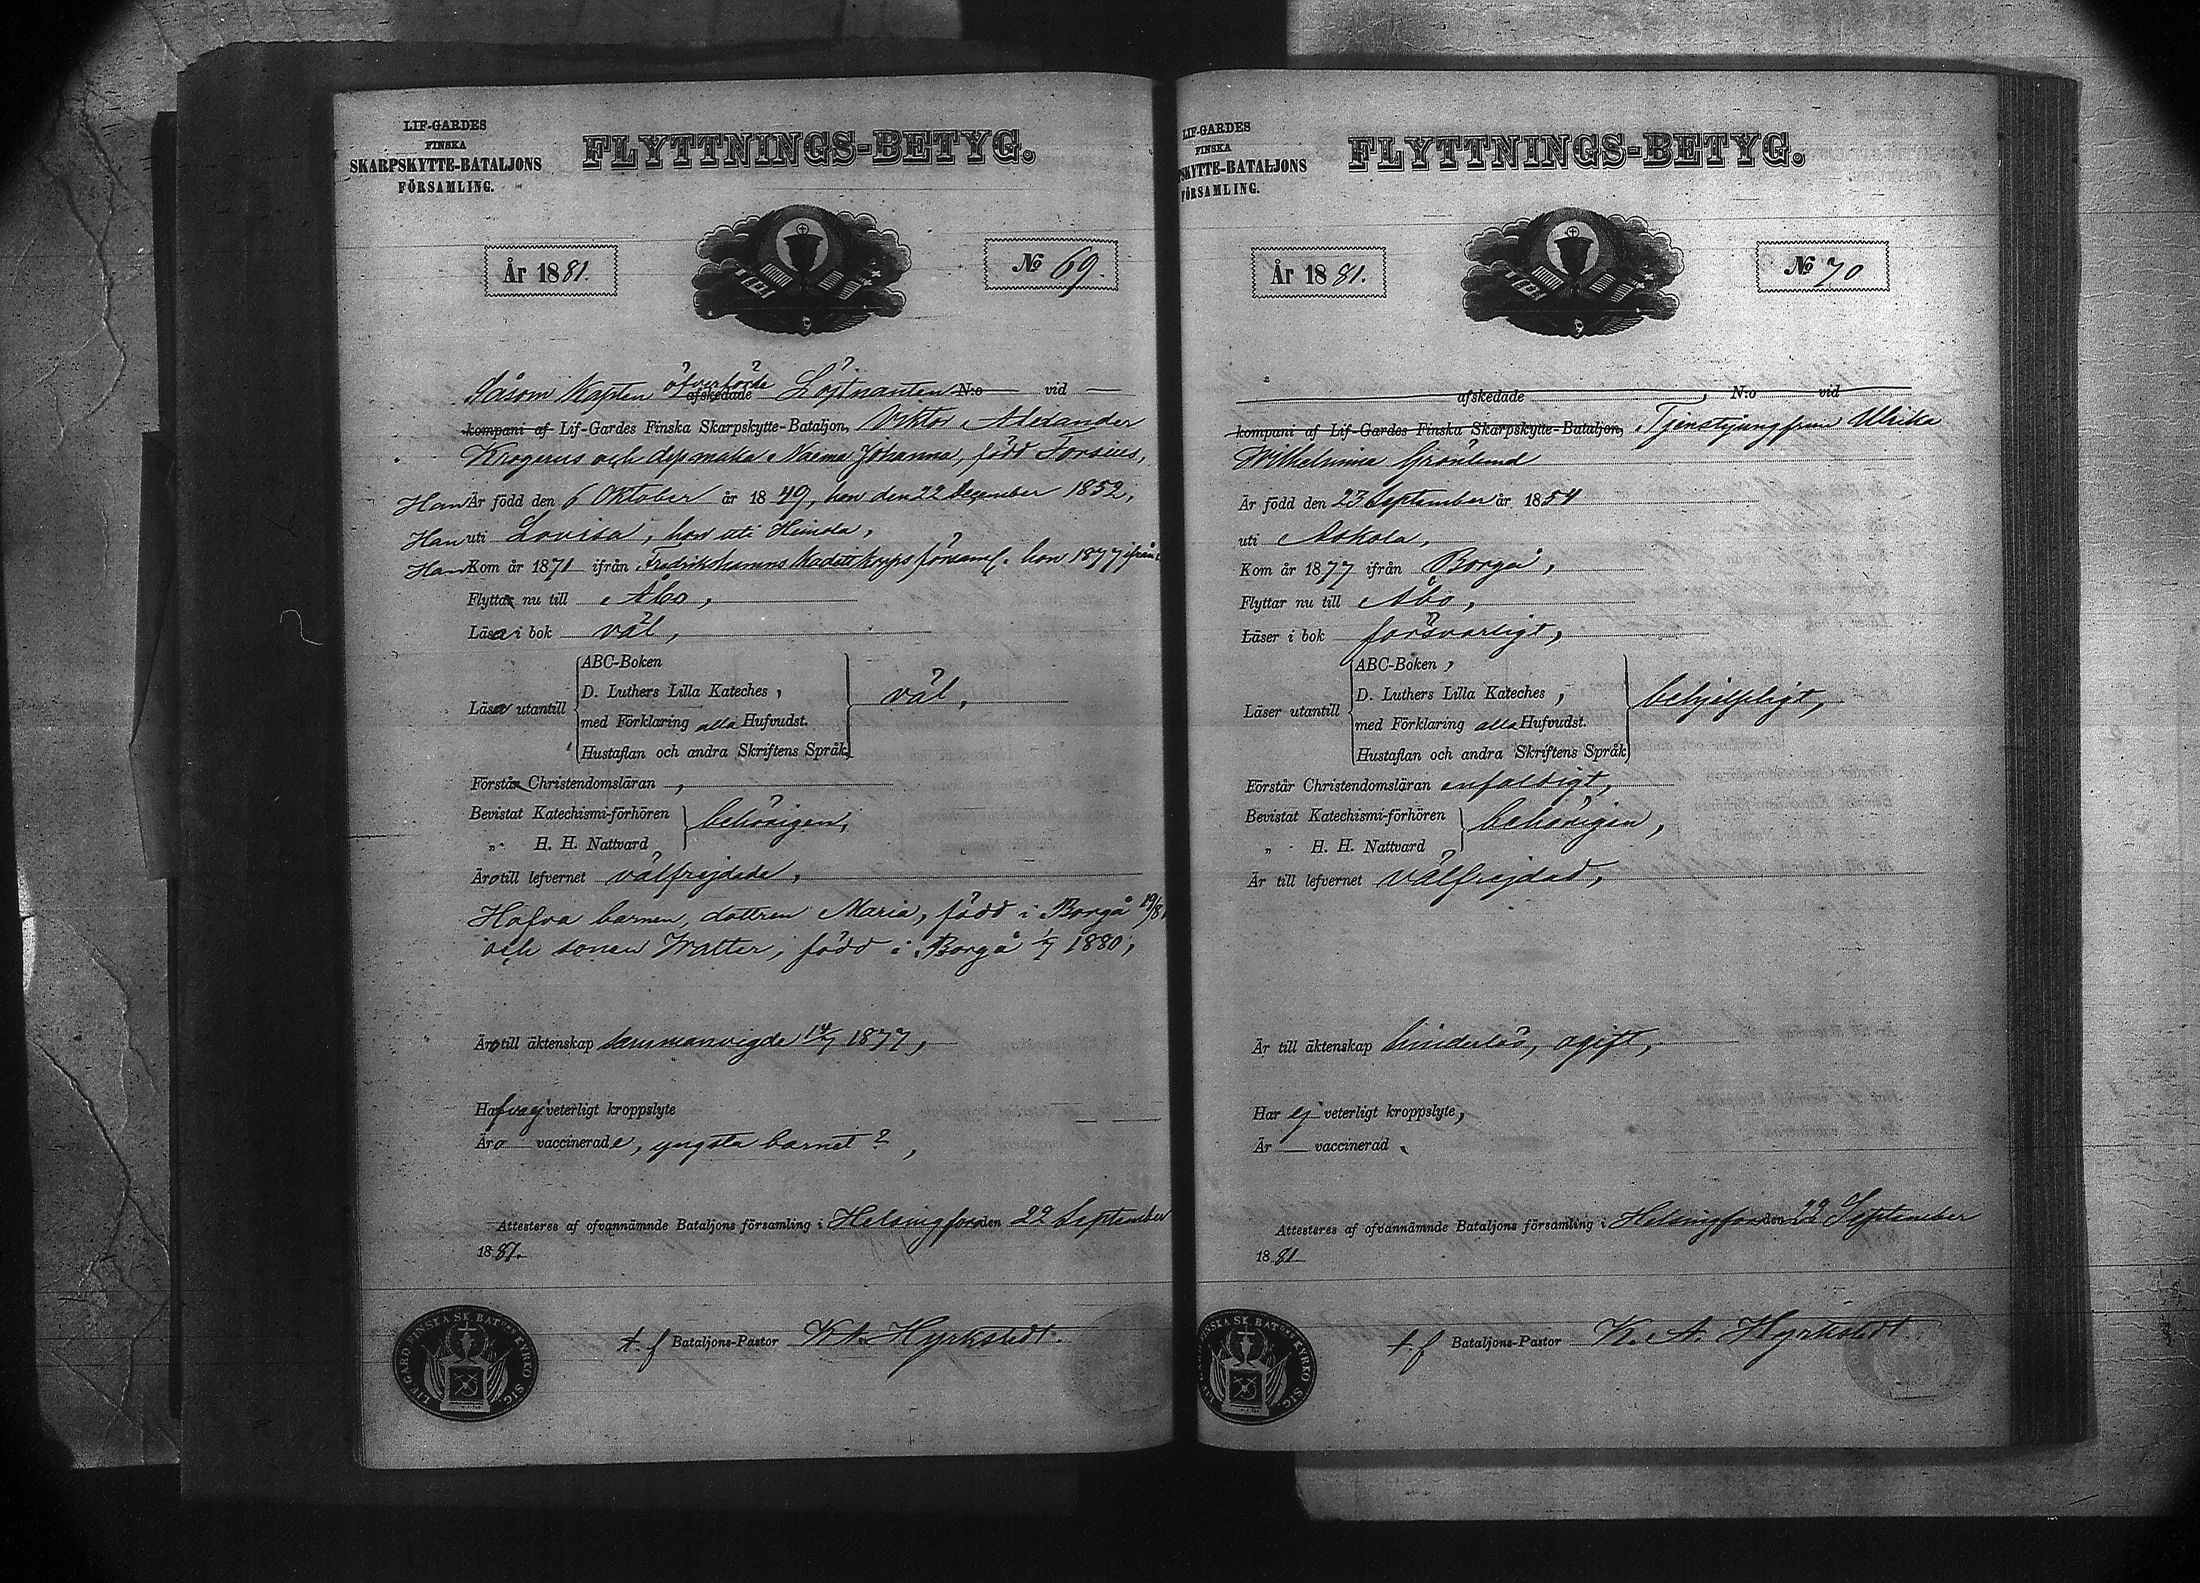 LIF-GARDES
FINSKA
SKARPSKYTTE-BATALJONS
FÖRSAMLING.
FLYTTNINGS-BETYG.
År 1881.
№ 69.
Såsom Kapten öfverförde afskedade Löjtnanten N:o vid
kompani af Lif-Gardes Finska Skarpskytte-Bataljon, Viktor Alexander
Krogerus och dess maka Naema Johanna, född Forsius,
Han Är född den 6 Oktober år 1849, hon den 22 December 1852,
Han uti Lovisa, hon uti Heinola,
Han Kom år 1871 ifrån Fredrikshamns Kadettkorps församl. hon 1877 ifrån
Flytta nu till Åbo,
Läsa i bok väl,
Läsa utantill
ABC-Boken
D. Luthers Lilla Kateches,
med Förklaring alla Hufvudst.
Hustaflan och andra Skriftens Språk
väl,
Förstår Christendomsläran,
Bevistat Katechismi-förhören
„ H. H. Nattvard
behörigen,
Äro till lefvernet välfrejdade,
Hafva barnen, dottren Maria, född i Borgå 19/8
och sonen Walter, född i Borgå 1/7 1880,
Äro till äktenskap sammanvigde 14/7 1877,
Hafva ej veterligt kroppslyte
Äro vaccinerade, yngsta barnet?,
Attesteras af ofvannämnde Bataljons församling i Helsingfors den 22 September
1881.
t. f Bataljons-Pastor K. A. Hyrkstedt.
LIF GARD FINSKA SK. BAT:NS KYRKO SIG.
LIF-GARDES
FINSKA
SKYTTE-BATALJONS
FÖRSAMLING.
FLYTTNINGS-BETYG.
År 1881.
№ 70
afskedade , N:o vid
kompani af Lif-Gardes Finska Skarpskytte-Bataljon, Tjenstejungfrun Ulrika
Wilhelmina Grönlund
Är född den 23 September år 1854
uti Askola,
Kom år 1877 ifrån Borgå,
Flyttar nu till Åbo,
Läser i bok försvarligt,
Läser utantill
ABC-Boken,
D. Luthers Lilla Kateches,
med Förklaring alla Hufvudst.
Hustaflan och andra Skriftens Språk
behjelpligt,
Förstår Christendomsläran enfaldigt,
Bevistat Katechismi-förhören
„ H. H. Nattvard
behörigen,
Är till lefvernet välfrejdad,
Är till äktenskap hinderlös, ogift,
Har ej veterligt kroppslyte,
Är vaccinerad.
Attesteras af ofvannämnde Bataljons församling i Helsingfors den 22 September
1881
t. f Bataljons-Pastor K. A. Hyrkstedt
FINSKA SK. BAT:NS KYRKO SIG.